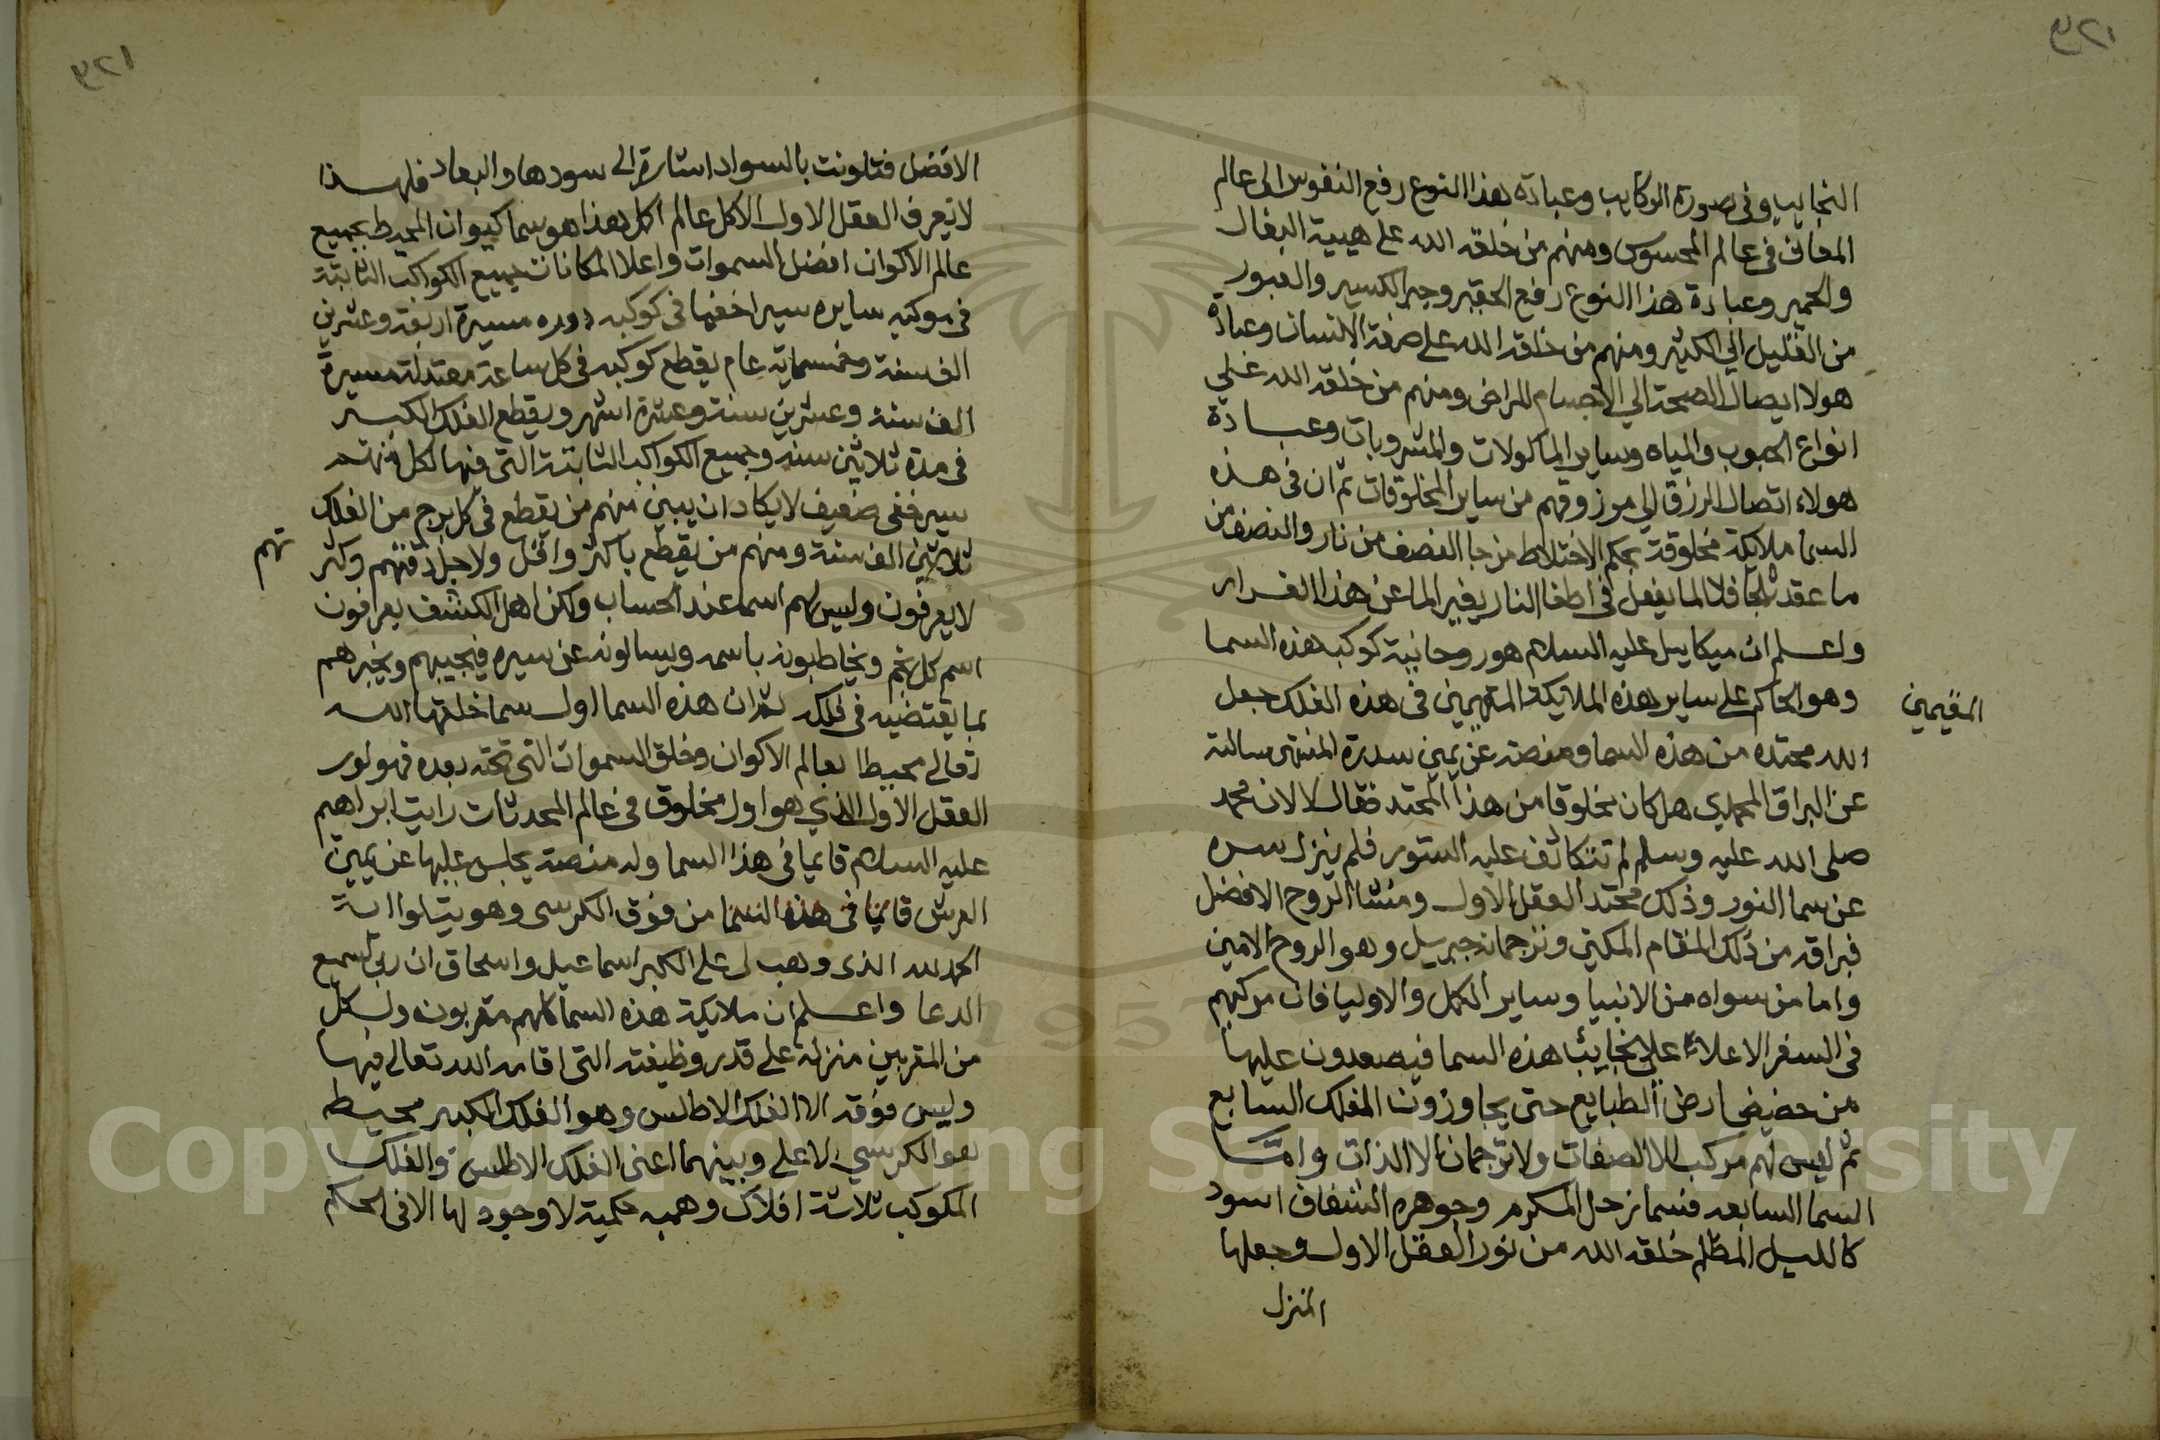 النجايب وفى صورة الركايب وعبادة هذا النوع رفع النفوس الى عالم
المعانى فى عالم المحسوس ومنهم من خلقه الله على هيية البغال
والحمير وعبادة هذا النوع رفع الحقير وجبر الكسير والعبور
من القليل الي الكثير ومنهم من خلقه الله على صفة الانسان وعبادة
هولا ايصال الصحة الي الاجسام المراض ومنهم من خلقه الله على
انواع الحبوب والمياه وساير الماكولات والمشروبات وعبادة
هولاء اتصال الرزق الي مرزوقهم من ساير المخلوقات ثم ان فى هذه
السما ملايكة مخلوقة بحكم الاختلاط مزجا النصف من نار والنصف من
ما عقد ثلجا فلا الما يفعل فى اطفا النار يغير الما عن هذا القرار
واعلم ان ميكاييل عليه السلام هو روحانية كوكب هذه السما
وهو الحاكم على ساير هذه الملايكة المقيمين فى هذه الفلك جعل
المقيمين
الله محتده من هذه السما ومنصته عن يمين سدرة المنتهى سالته
عن البراق المحمدي هل كان مخلوقا من هذا المحتد فقال لا لان محمد
صلى الله عليه وسلم لم تتكاثف عليه الستور فلم ينزل سره
عن سما النور وذلك محتد العقل الاول ومنشا الروح الافضل
فبراقه من ذلك المقام المكين وترجمانه جبريل وهو الروح الامين
واما من سواه من الانبيا وساير الكمل والاوليا فان مركبهم
فى السفر الاعلاء على نجايب هذه السما فيصعدون عليها
من حضيض ارض الطبايع حتى يجاوزون الفلك السابع
ثم ليس لهم مركب الا الصفات ولا ترجمان الا الذات واما
السما السابعه فسما زحل المكرم وجوهره الشفاف اسود
كالليل المظلم خلقه الله من نور العقل الاول وجعلها
المنزل
الافضل فتلونت بالسواد اشارة الى سودها والبعاد فلهذا
لا يعرف العقل الاول الا كل عالم اكل هذا هو سما كيوان المحيط بجميع
عالم الاكوان افضل السموات واعلا المكانات جميع الكواكب الثابتة
فى موكبه سايره سيرا خفيا فى كوكبه دوره مسيرة اربعة وعشرين
الف سنة وخمسماية عام يقطع كوكبه فى كل ساعة معتدلة مسيرة
الف سنة وعشرين سنة وعشرة اشهر ويقطع الفلك الكبير
فى مدة ثلاثين سنه وجميع الكواكب الثابتة التى فيها لكل منهم
سير خفى ضعيف لا يكاد ان يبين منهم من يقطع فى كل برج من الفلك
ثلاثين الف سنة ومنهم من يقطع باكثر واقل ولاجل دقتهم وكثر
تهم
لا يعرفون وليس لهم اسما عند الحساب ولكن اهل الكشف يعرفون
اسم كل نجم ويخاطبونه باسمه ويسالونه عن سيره فيجيبهم ويخبرهم
بما يقتضيه فى فلكه ثم ان هذه السما اول سما خلقها الله
تعالى محيطا بعالم الاكوان وخلق السموات التى تحته بعده فهو نور
العقل الاول الذي هو اول مخلوق فى عالم المحدثات رايت ابراهيم
عليه السلام قايما فى هذا السما وله منصة يجلس عليها عن يمين
العرش قائما فى هذه السما من فوق الكرسى وهو يتلوا اية
الحمد لله الذى وهب لى على الكبر اسماعيل واسحاق ان ربى لسميع
الدعا واعلم ان ملايكة هذه السما كلهم مقربون ولكل
من المقربين منزلة على قدر وظيفته التى اقامه الله تعالى فيها
وليس فوقه الا الفلك الاطلس وهو الفلك الكبير محيط
هو الكرسي الاعلى وبينهما اعنى الفلك الاطلس والفلك
المكوكب ثلاثة افلاك وهميه حكمية لا وجود لها الا فى الحكم